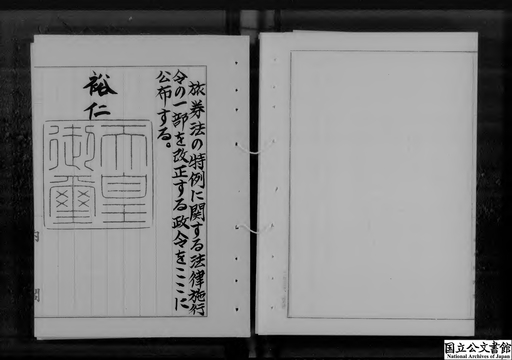 旅券法の特例に関する法律施行
令の一部を改正する政令をここに
公布する。
裕仁
天皇
御璽
内
閣
国立公文書館
National Archives of Japan